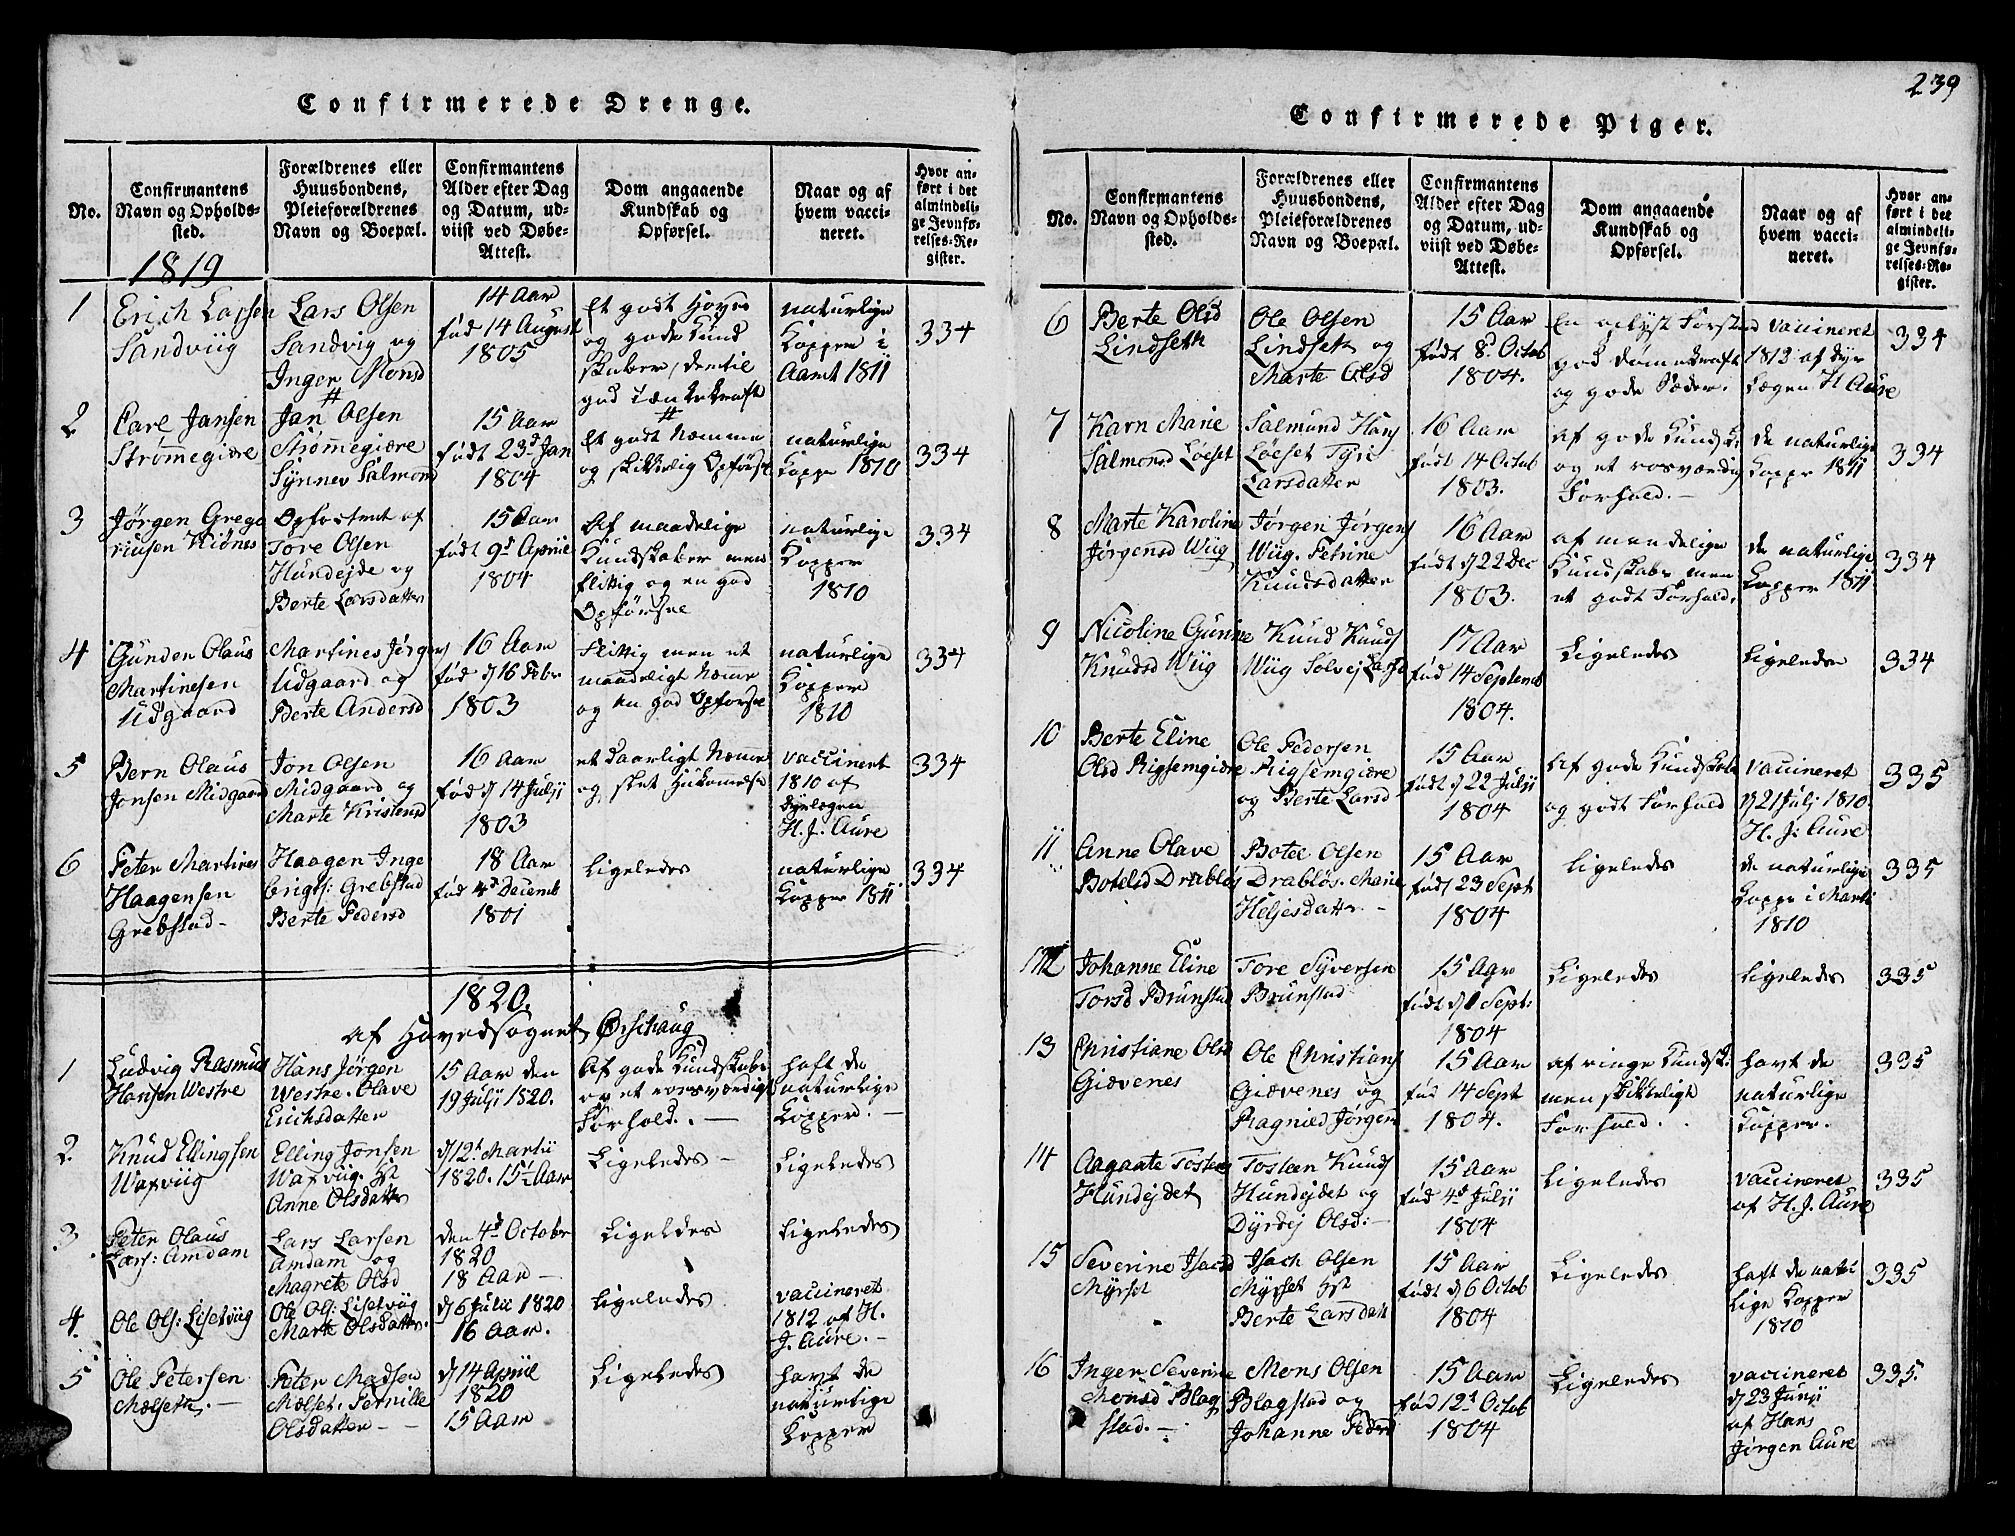 Confirmerede Drenge.
No.
Confirmantens
Navn og Opholds-
sted.
Forældrenes eller
Huusbondens,
Pleieforældrenes
Navn og Boepæl.
Confirmantens
Alder efter Dag
og Datum, ud-
viist ved Døbe-
Attest.
Dom angaaende
Kundskab og
Opførsel.
Naar og af
hvem vacci-
neret.
Hvor an-
ført i det
almindeli-
ge Jevnfø-
relses-Re-
gister.
1819
1
Erich Larsen
Sandviig
Lars Olsen
Sandvig og
Inger Monsd
14 Aar
fød 14 August
1805
Et godt
og gode Kund
skaber, dertil
god Tænkekraft
naturlige
Kopper i
Aaret 1811
334
2
Carl Jansen
Strømegiære
Jan Olsen
Strømegiære
Synnev Salmond
15 Aar
født 23d Jan
1804
Et godt Nemme
og skikkelig Opførsel
naturlige
Koppe 1810
334
3
Jørgen Grego
riusen Kidnes
Opfostret af
Tore Olsen
Hundejde og
Berte Larsdatter
15 Aar
født 9d Apriil
1804
Af maadelige
Kundskaber men
flittig og en god
Opførsel
naturlige
Kopper
1810
334
4
Gunder Olaus
Martinesen
Udgaard
Martines Jørgens
Udgaard og
Berte Andersd
16 Aar
fød d 16 Febr
1803
Flittig men et
maadeligt Nemme
og en god Opførsel
naturlige
Kopper
1810
334
5
Bern Olaus
Jonsen Midgaard
Jon Olsen
Midgaard og
Marte Kristensd
16 Aar
fød d 14 Julii
1803
et daarligt Nemme
og slet Hukomelse
vaccineret
1810 af
Dyrlægen
H. J. Aure
334
6
Peter Martines
Haagensen
Grebstad -
Haagen Inge
brigts: Grebstad
Berte Pedersd
18 Aar
fød 4d Decemb
1801
Ligeledes
naturlige
Kopper 1811
334
1820.
af Hovedsognet Ørschaug
1
Ludvig Rasmus
Hansen Westre
Hans Jørgen
Westre. Olave
Erichsdatter
15 Aar den
19 Julii 1820.
Af gode Kundskaber
og et rosværdigt
Forhold. -
haft de
naturlige
Kopper. -
2.
Knud Ellingsen
Waxviig
Elling Jonsen
Waxviig.
Anne Olsdatter
d 12t Martii
1820. 15½ Aar
Ligeledes -
Ligeledes
3.
Peter Olaus
Lars: Amdam
Lars Larsen
Amdam og
Magrete Olsd
den 4d October
1820
18 Aar -
Ligeledes
Ligeledes
4.
Ole Ols: Lisetviig
Ole Ols: Lisetviig
Marte Olsdatter.
d 6 Julii 1820
16 Aar.
Ligeledes
vaccineret
1812 af H.
J. Aure. -
5
Ole Petersen
Mælseth. -
Peter Madsen
Mælset. Pernille
Olsdatter -
d 14 Apriil
1820
15 Aar
Ligeledes
havt de
naturlige
Kopper
239
Confirmerede Piger.
No.
Confirmantens
Navn og Opholds-
sted.
Forældrenes eller
Huusbondens,
Pleieforældrenes
Navn og Boepæl.
Confirmantens
Alder efter Dag
og Datum, ud-
viist ved Døbe-
Attest.
Dom angaaende
Kundskab og
Opførsel.
Naar og af
hvem vacci-
neret.
Hvor an-
ført i det
almindeli-
ge Jevnfø-
relses-Re-
gister.
6
Berte Olsd
Lindseth
Ole Olsen
Lindseth og
Marte Olsd
15 Aar
født 8d Octob
1804.
En oplyst Forstand
god Dømekraft
og gode Sæder.
vaccineret
1813 af Dyr
Lægen H Aure
334
7
Karn Marie
Salmonsd Løeset
Salmund Hans
Løeset
Larsdatter
16 Aar
født 14 Octob
1803.
af gode Kundsk:
og et rosværdig
Forhold. -
de naturlige
Kopper 1811
334
8
Marte Karoline
Jørgensd Wiig
Jørgen Jørgens
Wiig. Petrine
Knudsdatter
16 Aar
født d 22 Dec
1803.
af maadelige
Kundskaber men
et godt Forhold.
de naturlige
Kopper 1811
334
9
Nicoline Gurine
Knudsd Wiig
Knud Knuds
Wiig Solvej Larsd
17 Aar
fød 14 Septemb
1804.
Ligeledes
Ligeledes
334
10
Berte Eline
Olsd Rigsemgiære
Ole Pedersen
Rigsemgiære
og Berte Larsd
15 Aar
født d 22 Julii
1804
Af gode Kundskab
og godt Forhold
vaccineret
d 21 Juli 1810.
H. J: Aure
335
11
Anne Olave
Botelsd Drabløs
Botel Olsen
Drabløs. Marie
Heljesdatter -
15 Aar
født 23 Sept
1804
ligeledes
de naturlige
Koppe i Marti
1810
335
12
Johanne Eline
Torsd Brunstad
Tore Syversen
Brunstad
15 Aar
født d 1 Sept:
1804
Ligeledes
Ligeledes
335
13
Christiane Olsd
Giævenes
Ole Christians
Giævenes og
Ragnild Jørgen
15 Aar
fød 14 Sept
1804.
af ringe Kundsk:
men skikkeligt
Forhold.
havt de
naturlige
Kopper.
335
14
Aagaate Tostens
Hundejdet
Tosteen Knuds
Hundejdet og
Dyrdej Olsd: -
15 Aar
fød 4d Julii
1804
Ligeledes
vaccineret
af H. J. Aure
335
15
Severine Isacsd
Myrset
Isach Olsen
Myrset
Berte Larsdatt
15 Aar
født d 6 Octob
1804
Ligeledes
haft de natur
lige Kopper
1810
335
16
Inger Severine
Monsd Blag
stad. -
Mons Olsen
Blagstad og
Johanne Pedersd
15 Aar
fød 12t Octob
1804
Ligeledes
vaccineret
d 23 Junii
af Hans
Jørgen Aure
335.